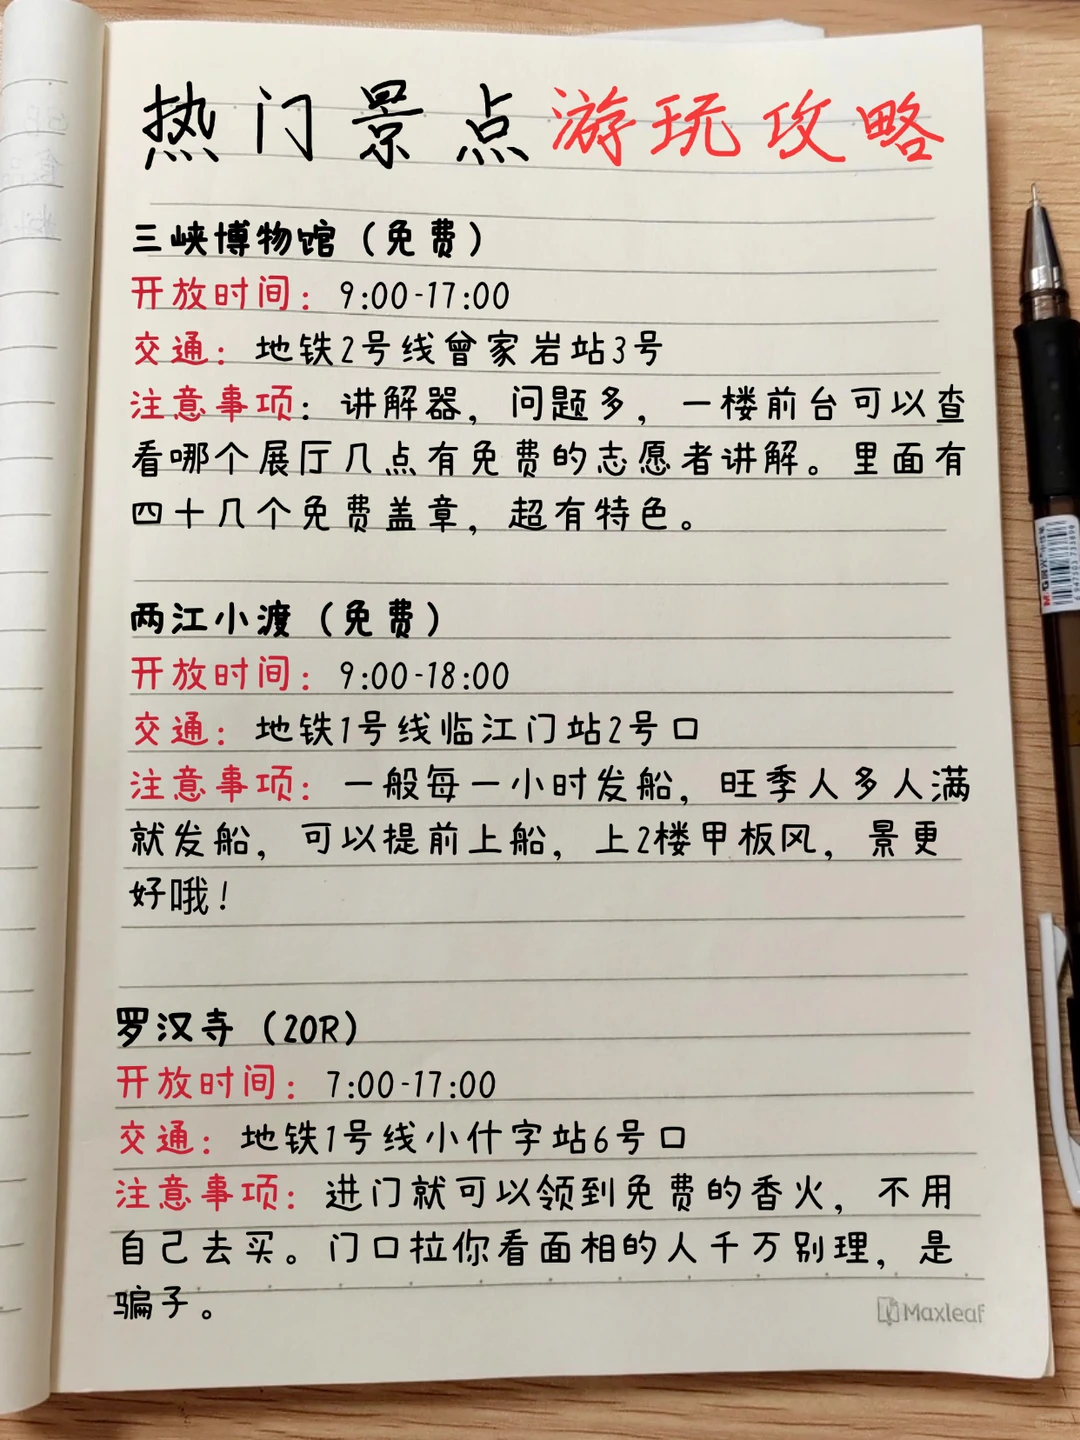 热门景点游玩攻略
三峡博物馆（免费）
开放时间：9:00-17:00
交通：地铁2号线曾家岩站3号
注意事项：讲解器，问题多，一楼前台可以查
看哪个展厅几点有免费的志愿者讲解。里面有
四十几个免费盖章，超有特色。
两江小渡（免费）
开放时间：9:00-18:00
交通：地铁1号线临江门站2号口
注意事项：一般每一小时发船，旺季人多人满
就发船，可以提前上船，上2楼甲板风，景更
好哦！
罗汉寺（20R）
开放时间：7:00-17:00
交通：地铁1号线小什字站6号口
注意事项：进门就可以领到免费的香火，不用
自己去买。门口拉你看面相的人千万别理，是
骗子。
Maxleaf
M&G